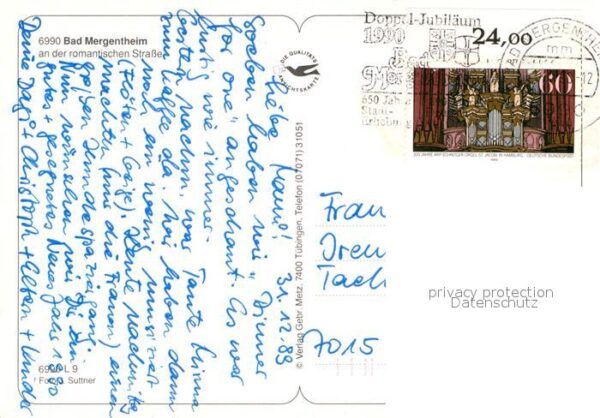 6990 Bad Mergentheim
an der romantischen Straße
Liebe
31.12.89
Soeben haben wir "Dinner
for one" angeschaut. Es war
lustig wie immer.
Gestern nachm. war Tante
zum Kaffee da. Wir haben dann
noch ein wenig musiziert
(Flöten + Geige). Heute
machten (nur die Frauen) einen
großen
Nun wünschen wir Dir ein
gutes + gesegnetes Neues Jahr 1990
Deine + Christoph + + Kinder
6990 L 9
Foto G. Suttner
DIE QUALITÄTS
ANSICHTSKARTE
© Verlag Gebr. Metz, 7400 Tübingen, Telefon (07071) 31051
Doppel-Jubiläum
1990
650 Jah
Stadt-
erhebung
BAD MERGENTHEIM
mm
12
24,00
60
300 JAHRE ARP-SCHNITGER-ORGEL ST. JACOBI IN HAMBURG DEUTSCHE BUNDESPOST
1989
Frau
7015
privacy protection
Datenschutz